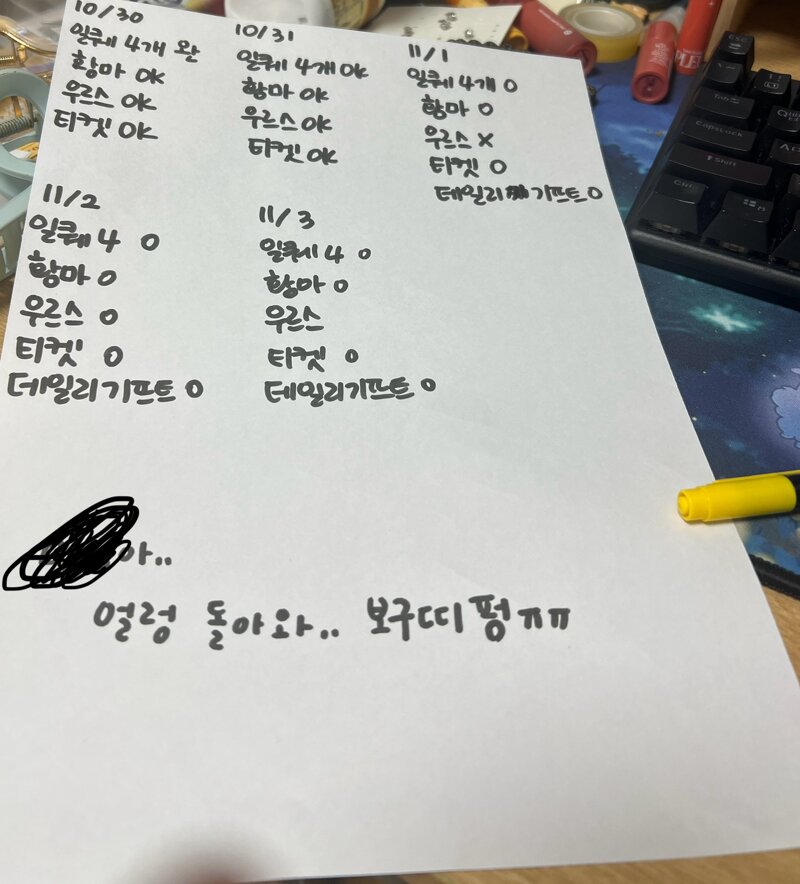 10/30
일퀘 4개 완
황마 OK
우르스 OK
티켓 OK
10/31
일퀘 4개 OK
황마 OK
우르스 OK
티켓 OK
11/1
일퀘 4개 O
황마 O
우르스 X
티켓 O
데일리 기프트 O
11/2
일퀘 4 O
황마 O
우르스 O
티켓 O
데일리기프트 O
11/3
일퀘 4 O
황마 O
우르스
티켓 O
데일리기프트 O
아..
얼렁 돌아와.. 보구띠펑ㅠㅠ
Esc
Tab
CapsLock
Shift
Ctrl